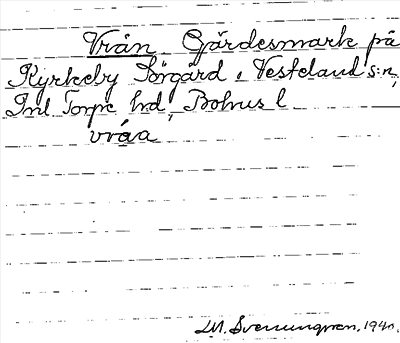 Vrån Gärdesmark på
Kyrkeby Sörgård, Vesteland s:n,
Inl Torpe hrd, Bohus l
vráa
M. Svenungsson, 1940.